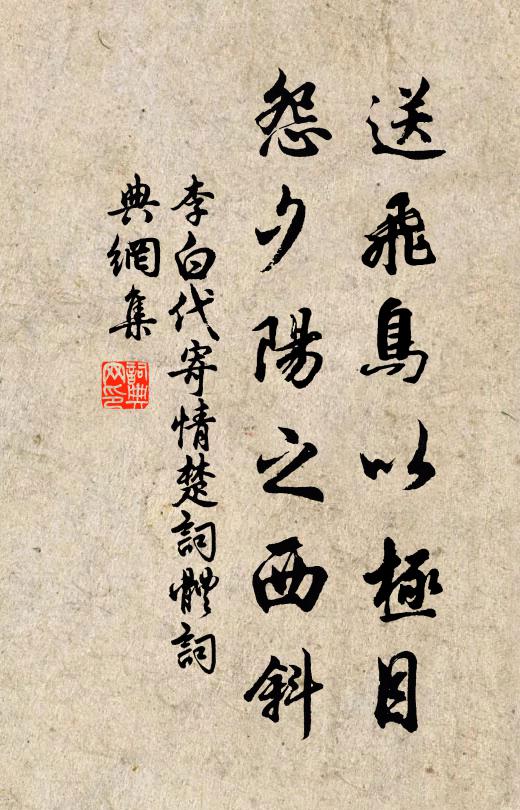 送飛鳥以極目
怨夕陽之西斜
李白代寄情楚詞體詞
典網集
詞典
网印